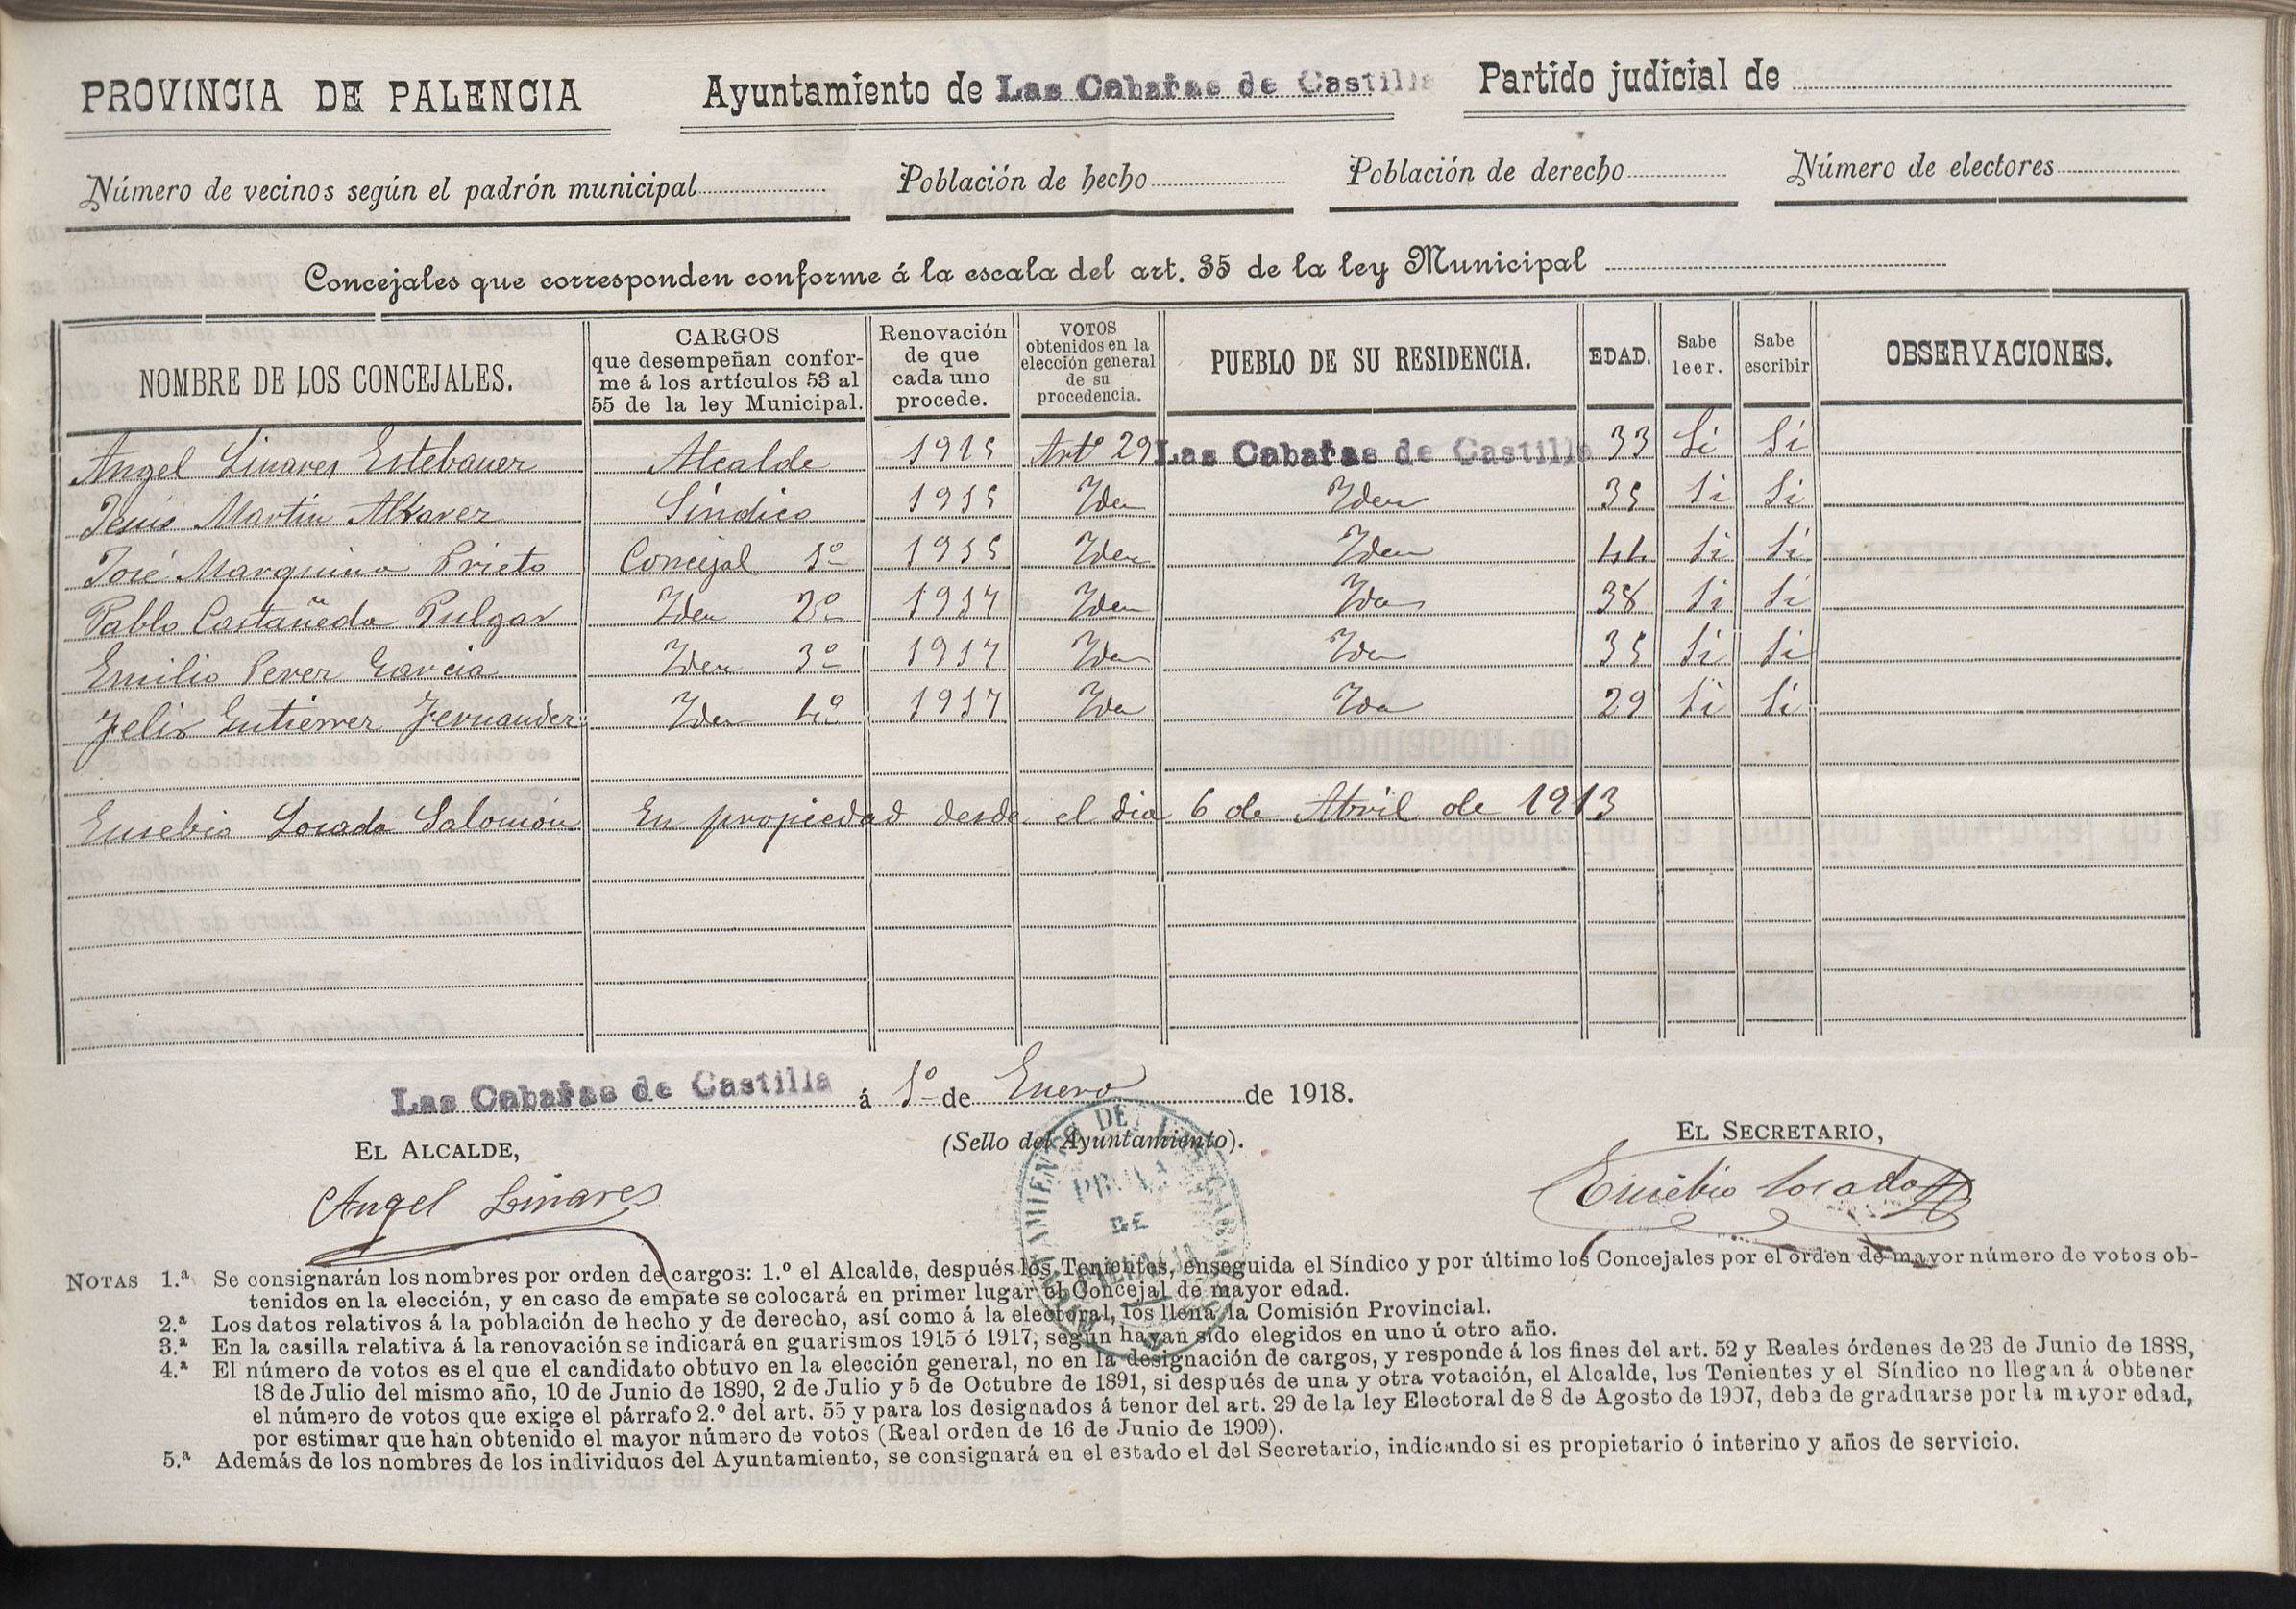 PROVINCIA DE PALENCIA Ayuntamiento de Las Cabañas de Castilla Partido judicial de
Número de vecinos según el padrón municipal Población de hecho Población de derecho Número de electores
Concejales que corresponden conforme á la escala del art. 35 de la ley Municipal
NOMBRE DE LOS CONCEJALES. CARGOS que desempeñan conforme á los artículos 53 al 55 de la ley Municipal. Renovación de que cada uno procede. VOTOS obtenidos en la elección general de su procedencia. PUEBLO DE SU RESIDENCIA. EDAD. Sabe leer. Sabe escribir OBSERVACIONES.
Angel Linares Estebanez Alcalde 1915 Artº 29 Las Cabañas de Castilla 33 Si Si
Jesús Martin Alvarez Síndico 1915 Iden Iden 35 Si Si
José Marquina Prieto Concejal 1º 1915 Iden Iden 44 Si Si
Pablo Castañeda Pulgar Iden 2º 1917 Iden Iden 38 Si Si
Emilio Perez Garcia Iden 3º 1917 Iden Iden 35 Si Si
Felix Gutierrez Fernandez Iden 4º 1917 Iden Iden 29 Si Si
Eusebio Losada Salomón En propiedad desde el dia 6 de Abril de 1913
Las Cabañas de Castilla á 1º de Enero de 1918.
EL ALCALDE, (Sello del Ayuntamiento). EL SECRETARIO,
Angel Linares Eusebio Losada
NOTAS 1.ª Se consignarán los nombres por orden de cargos: 1.º el Alcalde, después los Tenientes, enseguida el Síndico y por último los Concejales por el orden de mayor número de votos ob-
tenidos en la elección, y en caso de empate se colocará en primer lugar el Concejal de mayor edad.
2.ª Los datos relativos á la población de hecho y de derecho, así como á la electoral, los llena la Comisión Provincial.
3.ª En la casilla relativa á la renovación se indicará en guarismos 1915 ó 1917, según hayan sido elegidos en uno ú otro año.
4.ª El número de votos es el que el candidato obtuvo en la elección general, no en la designación de cargos, y responde á los fines del art. 52 y Reales órdenes de 23 de Junio de 1888,
18 de Julio del mismo año, 10 de Junio de 1890, 2 de Julio y 5 de Octubre de 1891, si después de una y otra votación, el Alcalde, los Tenientes y el Síndico no llegan á obtener
el número de votos que exige el párrafo 2.º del art. 55 y para los designados á tenor del art. 29 de la ley Electoral de 8 de Agosto de 1907, debe de graduarse por la mayor edad,
por estimar que han obtenido el mayor número de votos (Real orden de 16 de Junio de 1909).
5.ª Además de los nombres de los individuos del Ayuntamiento, se consignará en el estado el del Secretario, indicando si es propietario ó interino y años de servicio.